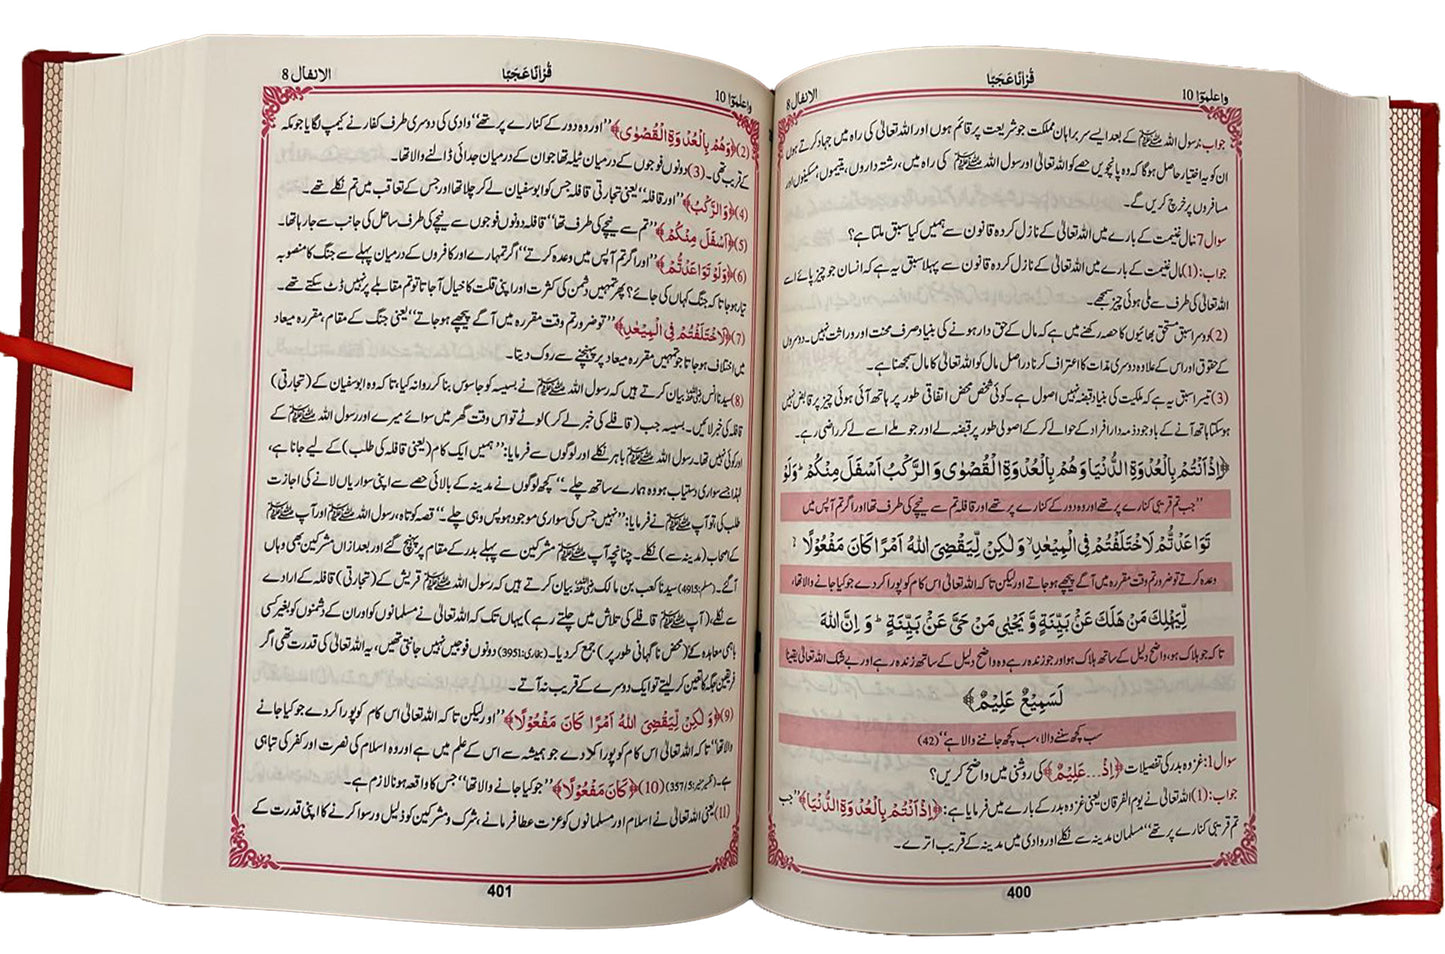 واعلموا 10
قُرْاٰنًا عَجَبًا
الانفال 8
جواب: رسول اللہ ﷺ کے بعد ایسے سربراہان مملکت جو شریعت پر قائم ہوں اور اللہ تعالیٰ کی راہ میں جہاد کرتے ہوں
ان کو یہ اختیار حاصل ہوگا کہ وہ پانچویں حصے کو اللہ تعالیٰ اور رسول اللہ ﷺ کی راہ میں، رشتہ داروں، یتیموں، مسکینوں اور
مسافروں پر خرچ کریں گے۔
سوال 7: مال غنیمت کے بارے میں اللہ تعالیٰ کے نازل کردہ قانون سے ہمیں کیا سبق ملتا ہے؟
جواب: (1) مال غنیمت کے بارے میں اللہ تعالیٰ کے نازل کردہ قانون سے پہلا سبق یہ ہے کہ انسان جو چیز پائے اسے
اللہ تعالیٰ کی طرف سے ملی ہوئی چیز سمجھے۔
(2) دوسرا سبق مستحق بھائیوں کا حصہ رکھنے میں ہے کہ مال کے حق دار ہونے کی بنیاد صرف محنت اور وراثت نہیں۔ دوسروں
کے حقوق اور اس کے علاوہ دوسری مدات کا اعتراف کرنا دراصل مال کو اللہ تعالیٰ کا مال سمجھنا ہے۔
(3) تیسرا سبق یہ ہے کہ ملکیت کی بنیاد قبضہ نہیں اصول ہے۔ کوئی شخص محض اتفاقی طور پر ہاتھ آئی ہوئی چیز پر قابض نہیں
ہو سکتا ہاتھ آنے کے باوجود ذمہ دار افراد کے حوالے کر کے اصولی طور پر قبضہ لے اور جو ملے اسے لے کر راضی رہے۔
﴿اِذْ اَنْتُمْ بِالْعُدْوَةِ الدُّنْيَا وَهُمْ بِالْعُدْوَةِ الْقُصْوٰى وَ الرَّكْبُ اَسْفَلَ مِنْكُمْ ؕ وَلَوْ
”جب تم قریبی کنارے پر تھے اور وہ دور کے کنارے پر تھے اور قافلہ تم سے نیچے کی طرف تھا اور اگر تم آپس میں
تَوَاعَدْتُّمْ لَاخْتَلَفْتُمْ فِى الْمِيْعٰدِ ۙ وَلٰكِنْ لِّيَقْضِىَ اللّٰهُ اَمْرًا كَانَ مَفْعُوْلًا
وعدہ کرتے تو ضرور تم وقت مقررہ میں آگے پیچھے ہو جاتے اور لیکن تاکہ اللہ تعالیٰ اس کام کو پورا کر دے جو کیا جانے والا تھا،
لِّيَهْلِكَ مَنْ هَلَكَ عَنْۢ بَيِّنَةٍ وَّ يَحْيٰى مَنْ حَىَّ عَنْۢ بَيِّنَةٍ ؕ وَ اِنَّ اللّٰهَ
تاکہ جو ہلاک ہو، واضح دلیل کے ساتھ ہلاک ہو اور جو زندہ رہے وہ واضح دلیل کے ساتھ زندہ رہے اور بے شک اللہ تعالیٰ یقیناً
لَسَمِيْعٌ عَلِيْمٌ﴾
سب کچھ سننے والا، سب کچھ جاننے والا ہے“ (42)
سوال 1: غزوہ بدر کی تفصیلات ﴿اِذْ... عَلِيْمٌ﴾ کی روشنی میں واضح کریں؟
جواب: (1) اللہ تعالیٰ نے یوم الفرقان یعنی غزوہ بدر کے بارے میں فرمایا ہے: ﴿اِذْ اَنْتُمْ بِالْعُدْوَةِ الدُّنْيَا﴾ ”جب
تم قریبی کنارے پر تھے“ مسلمان مدینہ سے نکلے اور وادی میں مدینہ کے قریب اترے۔
400
واعلموا 10
قُرْاٰنًا عَجَبًا
الانفال 8
(2) ﴿وَهُمْ بِالْعُدْوَةِ الْقُصْوٰى﴾ ”اور وہ دور کے کنارے پر تھے“ وادی کی دوسری طرف کفار نے کیمپ لگایا جو مکہ
کے قریب تھی۔ (3) دونوں فوجوں کے درمیان ٹیلہ تھا جو ان کے درمیان جدائی ڈالنے والا تھا۔
(4) ﴿وَالرَّكْبُ﴾ ”اور قافلہ“ یعنی تجارتی قافلہ جس کو ابوسفیان لے کر چلا تھا اور جس کے تعاقب میں تم نکلے تھے۔
(5) ﴿اَسْفَلَ مِنْكُمْ﴾ ”تم سے نیچے کی طرف تھا“ قافلہ دونوں فوجوں سے نیچے کی طرف ساحل کی جانب سے جا رہا تھا۔
(6) ﴿وَلَوْ تَوَاعَدْتُّمْ﴾ ”اور اگر تم آپس میں وعدہ کرتے“ اگر تمہارے اور کافروں کے درمیان پہلے سے جنگ کا منصوبہ
تیار ہو جاتا کہ جنگ کہاں کی جائے؟ پھر تمہیں دشمن کی کثرت اور اپنی قلت کا خیال آ جاتا تو تم مقابلے پر نہیں ڈٹ سکتے تھے۔
(7) ﴿لَاخْتَلَفْتُمْ فِى الْمِيْعٰدِ﴾ ”تو ضرور تم وقت مقررہ میں آگے پیچھے ہو جاتے“ یعنی جنگ کے مقام، مقررہ میعاد
میں اختلاف ہو جاتا جو تمہیں مقررہ میعاد پر پہنچنے سے روک دیتا۔
(8) سیدنا انس رضی اللہ عنہ بیان کرتے ہیں کہ رسول اللہ ﷺ نے بسیسہ کو جاسوس بنا کر روانہ کیا، تاکہ وہ ابوسفیان کے (تجارتی)
قافلہ کی خبر لائیں۔ بسیسہ جب (قافلے کی خبر لے کر) لوٹے تو اس وقت گھر میں سوائے میرے اور رسول اللہ ﷺ کے
اور کوئی نہیں تھا۔ رسول اللہ ﷺ باہر نکلے اور لوگوں سے فرمایا: ”ہمیں ایک کام (یعنی قافلہ کی طلب) کے لیے جانا ہے،
لہٰذا جسے سواری دستیاب ہو وہ ہمارے ساتھ چلے۔“ کچھ لوگوں نے مدینہ کے بالائی حصے سے اپنی سواریاں لانے کی اجازت
طلب کی تو آپ ﷺ نے فرمایا: ”نہیں جس کی سواری موجود ہو بس وہی چلے۔“ قصہ کوتاہ، رسول اللہ ﷺ اور آپ ﷺ
کے اصحاب (مدینہ سے) نکلے۔ چنانچہ آپ ﷺ مشرکین سے پہلے بدر کے مقام پر پہنچ گئے اور بعد ازاں مشرکین بھی وہاں
آ گئے۔ (مسلم: 4915) سیدنا کعب بن مالک رضی اللہ عنہ بیان کرتے ہیں کہ رسول اللہ ﷺ قریش کے (تجارتی) قافلہ کے ارادے
سے نکلے، (آپ ﷺ قافلے کی تلاش میں چلتے رہے) یہاں تک کہ اللہ تعالیٰ نے مسلمانوں کو اور ان کے دشمنوں کو بغیر کسی
باہمی معاہدہ کے (محض ناگہانی طور پر) جمع کر دیا۔ (بخاری: 3951) دونوں فوجیں نہیں جانتی تھیں، یہ اللہ تعالیٰ کی قدرت تھی اگر
فریقین جگہ کا تعین کر لیتے تو ایک دوسرے کے قریب نہ آتے۔
(9) ﴿وَ لٰكِنْ لِّيَقْضِىَ اللّٰهُ اَمْرًا كَانَ مَفْعُوْلًا﴾ ”اور لیکن تاکہ اللہ تعالیٰ اس کام کو پورا کر دے جو کیا جانے
والا تھا“ تاکہ اللہ تعالیٰ اس کام کو پورا کر دے جو ہمیشہ سے اس کے علم میں ہے اور وہ اسلام کی نصرت اور کفر کی تباہی
ہے۔ (تفسیر منیر: 357/5) (10) ﴿كَانَ مَفْعُوْلًا﴾ ”جو کیا جانے والا تھا“ جس کا واقعہ ہونا لازم ہے۔
(11) یعنی اللہ تعالیٰ نے اسلام اور مسلمانوں کو عزت عطا فرمانے، شرک و مشرکین کو ذلیل و رسوا کرنے کا اپنی قدرت کے
401